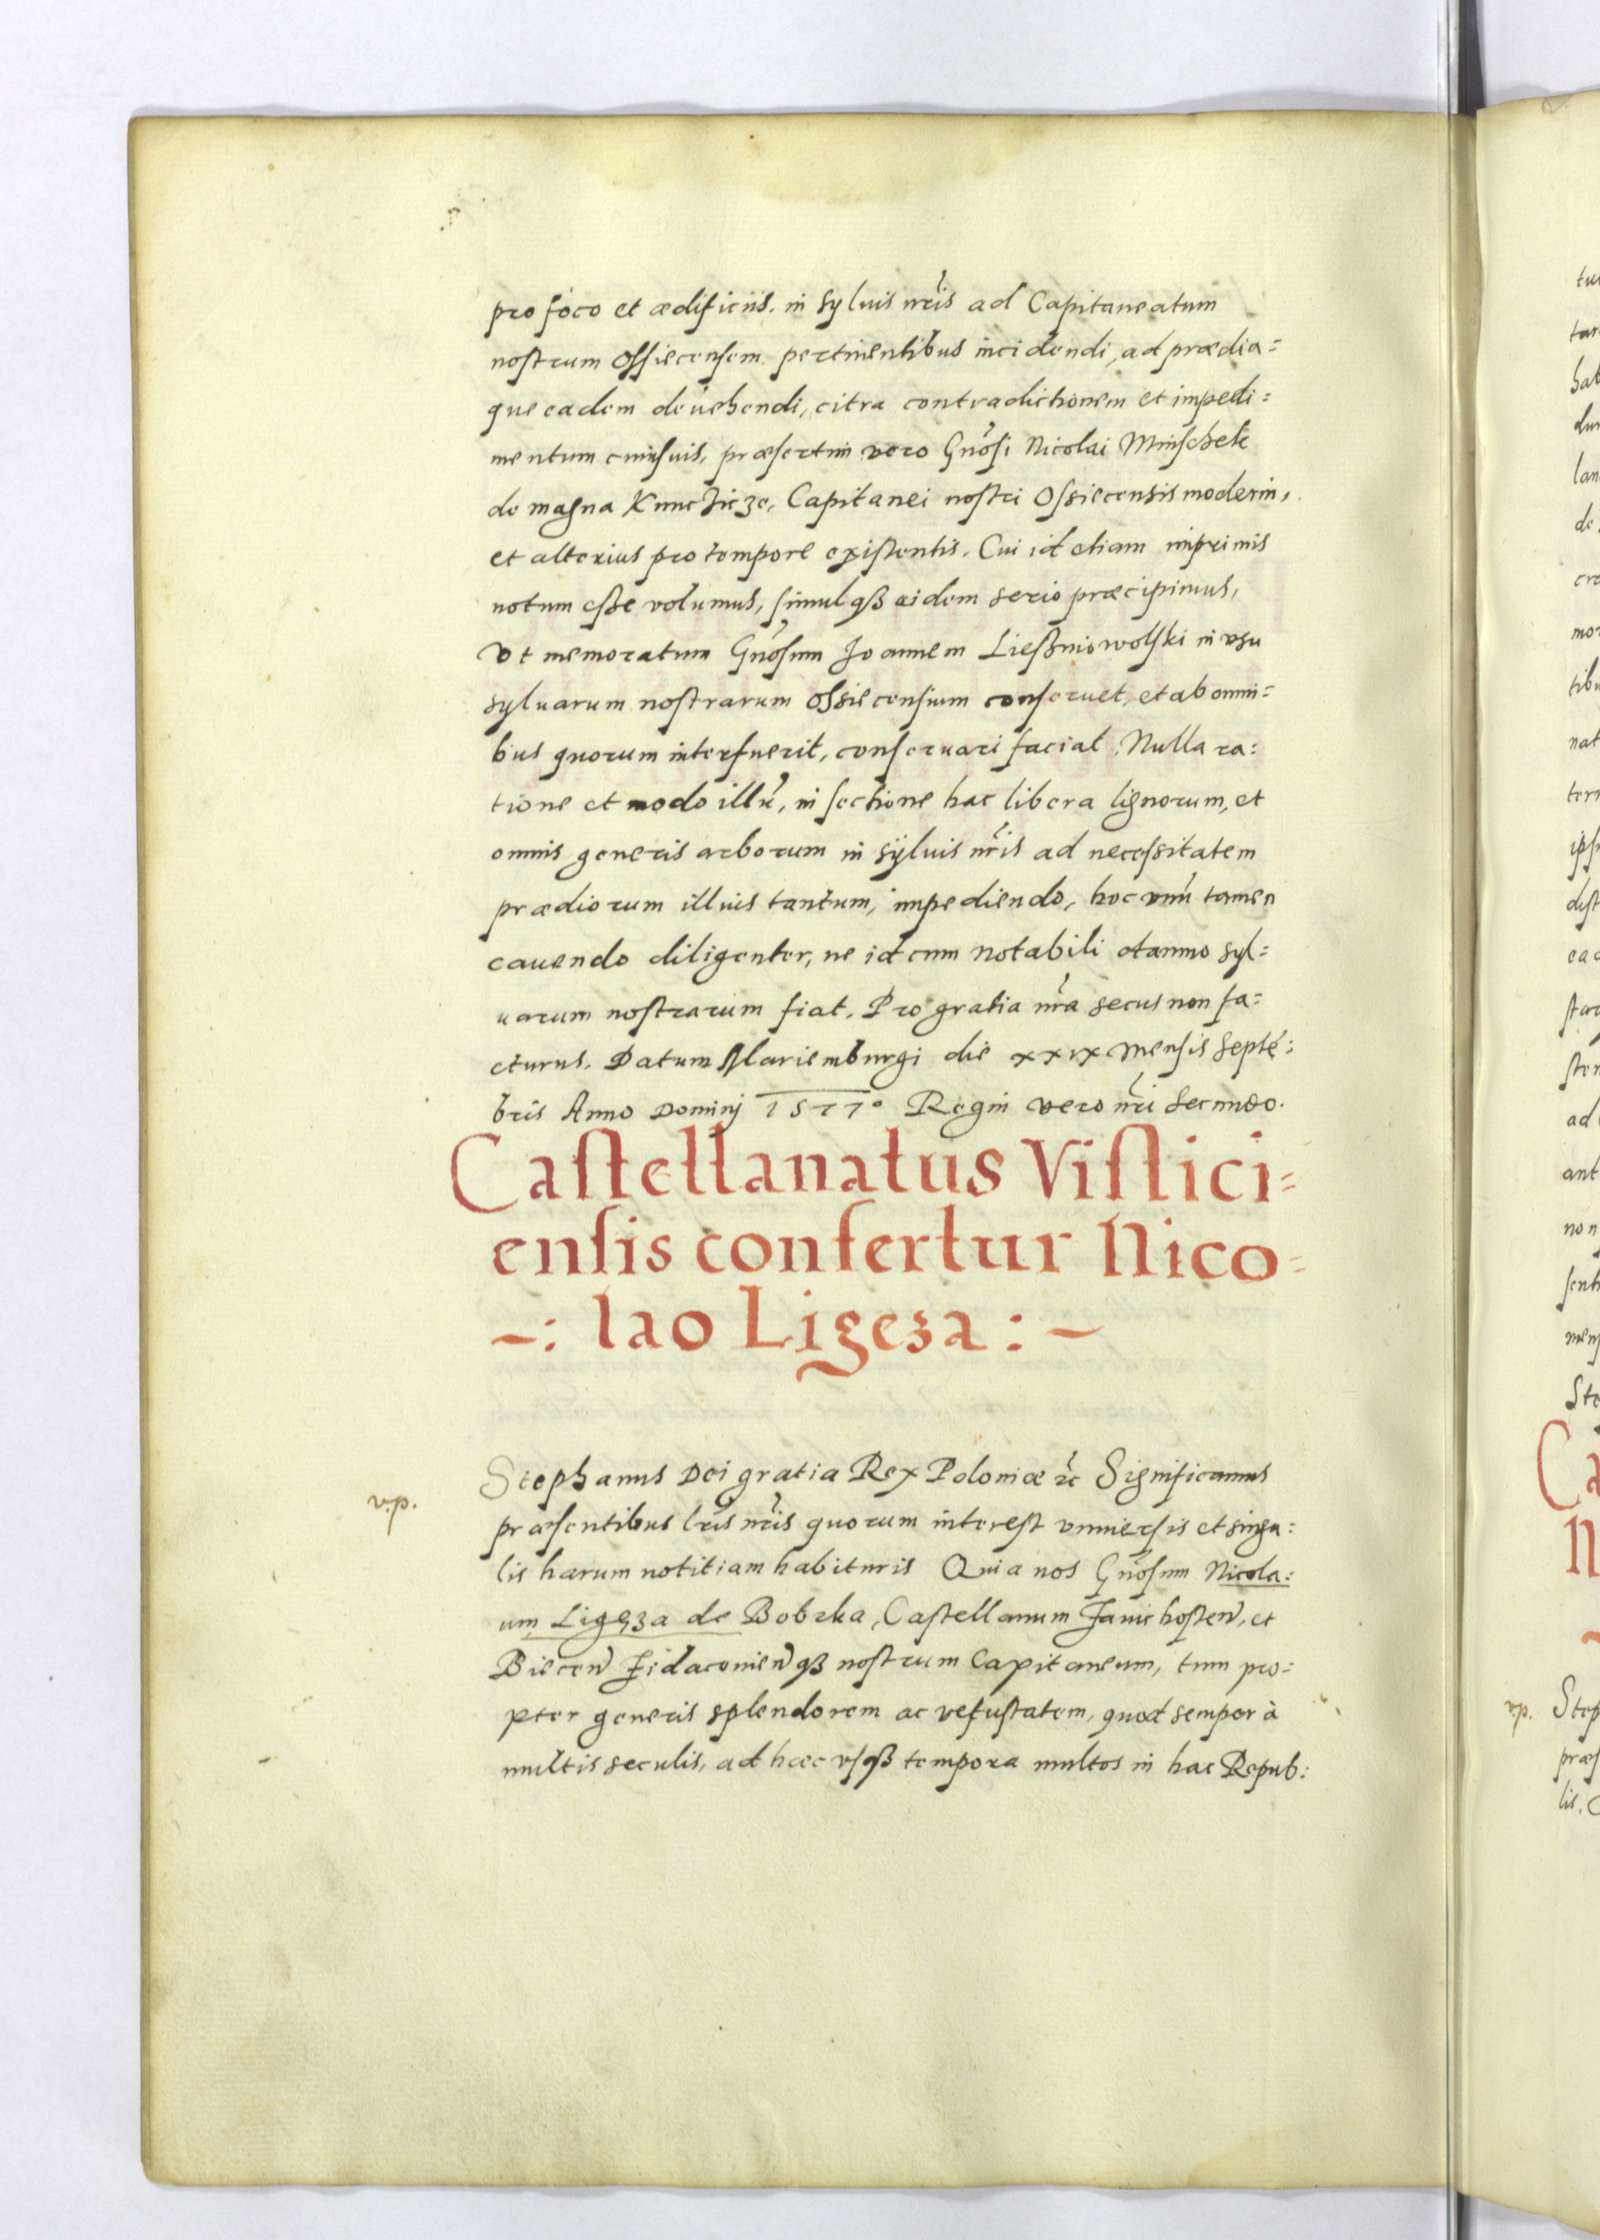 pro foco et ædificiis. in syluis nr̃is ad Capitaneatum
nostrum Ossiecensem pertinentibus incidendi, ad prædia=
que eadem deuehendi, citra contradictionem et impedi=
mentum cuiusuis, præsertim vero Gnõsi Nicolai Minschek
de magna Kunczicze, Capitanei nostri Ossiecensis moderni,
et alterius pro tempore existentis. Cui id etiam imprimis
notum esse volumus, simulqȝ eidem serio præcipimus,
vt memoratum Gnõsum Joannem Liesßniowolski in vsu
syluarum nostrarum Ossiecensium conseruet, et ab omni=
bus quorum interfuerit, conseruari faciat. Nulla ra=
tione et modo illũ, in sectione hac libera lignorum, et
omnis generis arborum in syluis nr̃is ad necessitatem
prædiorum illius tantum, impediendo, hoc vnũ tamen
cauendo diligenter, ne id cum notabili damno syl=
uarum nostrarum fiat. Pro gratia nr̃a secus non fa=
cturus. Datum Mariemburgi die xxix mensis Septẽ=
bris Anno Dominj 1577° Regni vero nr̃i secundo.
Castellanatus Vislici=
ensis confertur Nico=
-: lao Ligeza : -
Stephanus Dei gratia Rex Poloniæ ꝛc Significamus
v.p.
præsentibus lr̃is nr̃is quorum interest vniuersis et singu=
lis harum notitiam habituris Quia nos Gnõsum Nicola=
um Ligęza de Bobrka, Castellanum Zauichosteñ, et
Bieceñ Zidaczouieñqȝ nostrum Capitaneum, tum pro=
pter generis splendorem ac vetustatem, quod semper à
multis seculis, ad hæc vsqȝ tempora multos in hac Repub: